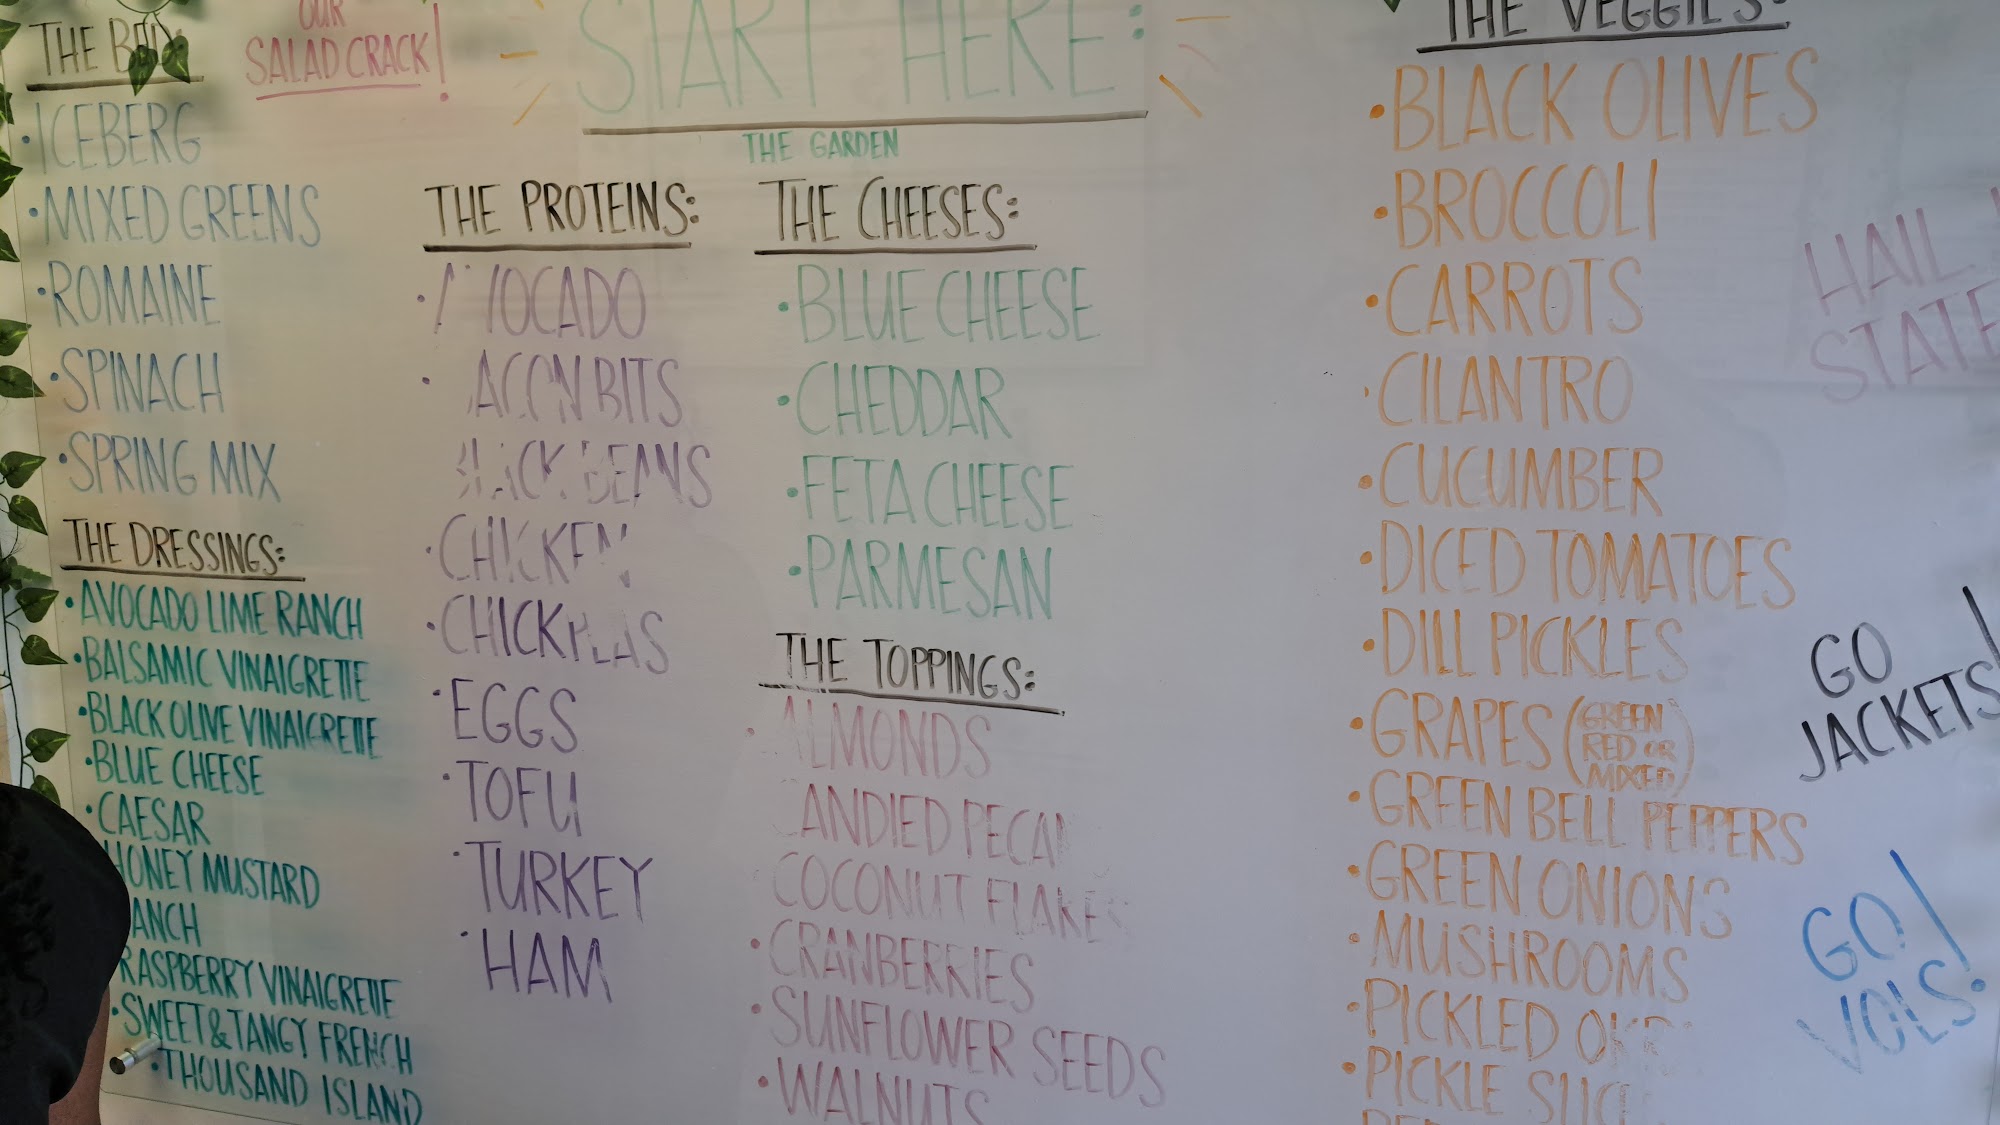 THE BED:
OUR
SALAD CRACK!
• ICEBERG
• MIXED GREENS
• ROMAINE
• SPINACH
• SPRING MIX
THE DRESSINGS:
• AVOCADO LIME RANCH
• BALSAMIC VINAIGRETTE
• BLACK OLIVE VINAIGRETTE
• BLUE CHEESE
• CAESAR
HONEY MUSTARD
RANCH
RASPBERRY VINAIGRETTE
• SWEET & TANGY FRENCH
• THOUSAND ISLAND
START HERE:
THE GARDEN
THE PROTEINS:
• AVOCADO
• BACON BITS
BLACK BEANS
• CHICKEN
• CHICKPEAS
• EGGS
• TOFU
• TURKEY
• HAM
THE CHEESES:
• BLUE CHEESE
• CHEDDAR
• FETA CHEESE
• PARMESAN
THE TOPPINGS:
• ALMONDS
CANDIED PECAN
COCONUT FLAKES
• CRANBERRIES
• SUNFLOWER SEEDS
• WALNUTS
THE VEGGIES:
• BLACK OLIVES
• BROCCOLI
• CARROTS
• CILANTRO
• CUCUMBER
• DICED TOMATOES
• DILL PICKLES
• GRAPES (GREEN
RED OR
MIXED)
• GREEN BELL PEPPERS
• GREEN ONIONS
• MUSHROOMS
• PICKLED OKRA
• PICKLE
HAIL
STATE
GO
JACKETS!
GO
VOLS!